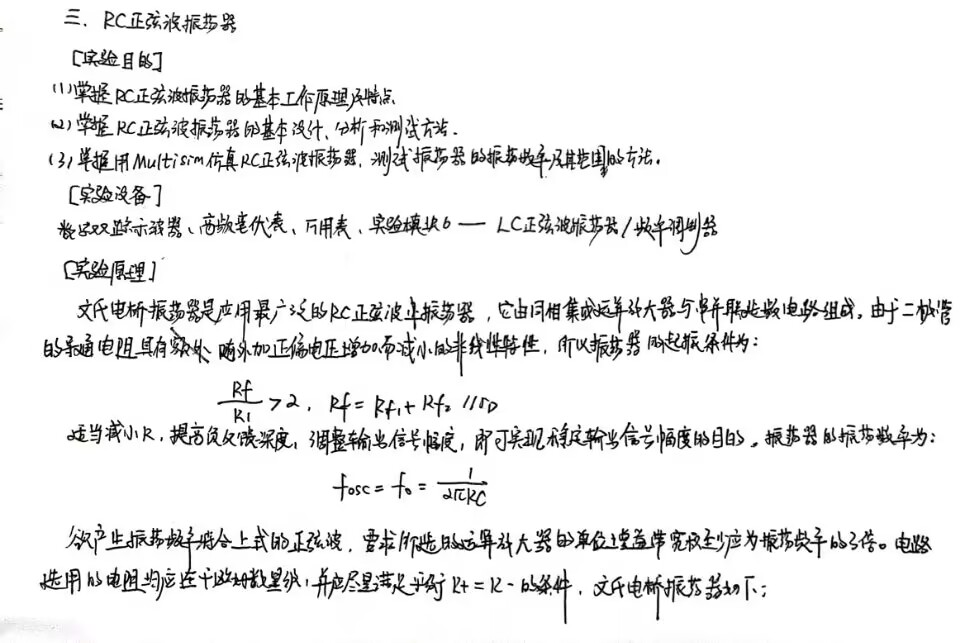 三、RC正弦波振荡器
[实验目的]
(1)掌握RC正弦波振荡器的基本工作原理及特点
(2)掌握RC正弦波振荡器的基本设计、分析和测试方法.
(3)掌握用Multisim仿真RC正弦波振荡器、测试振荡器的振荡频率及其范围的方法。
[实验设备]
双踪示波器、高频毫伏表、万用表、实验模块6 —— LC正弦波振荡器/频率调制器
[实验原理]
文氏电桥振荡器是应用最广泛的RC正弦波振荡器，它由同相集成运算放大器与串并联选频电路组成。由于二极管
的导通电阻具有随外加正偏电压增加而减小的非线性特性，所以振荡器的起振条件为：
Rf/R1 >2, Rf = Rf1 + Rf2 //rD
适当减小R，提高负反馈深度，调整输出信号幅度，即可实现稳定输出信号幅度的目的。振荡器的振荡频率为：
fosc = f0 = 1/2πRC
欲产生振荡频率符合上式的正弦波，要求所选的运算放大器的单位增益带宽积至少应为振荡频率的3倍。电路
选用的电阻均应在千欧姆数量级，并应尽量满足平衡R+ = R- 的条件，文氏电桥振荡器如下：